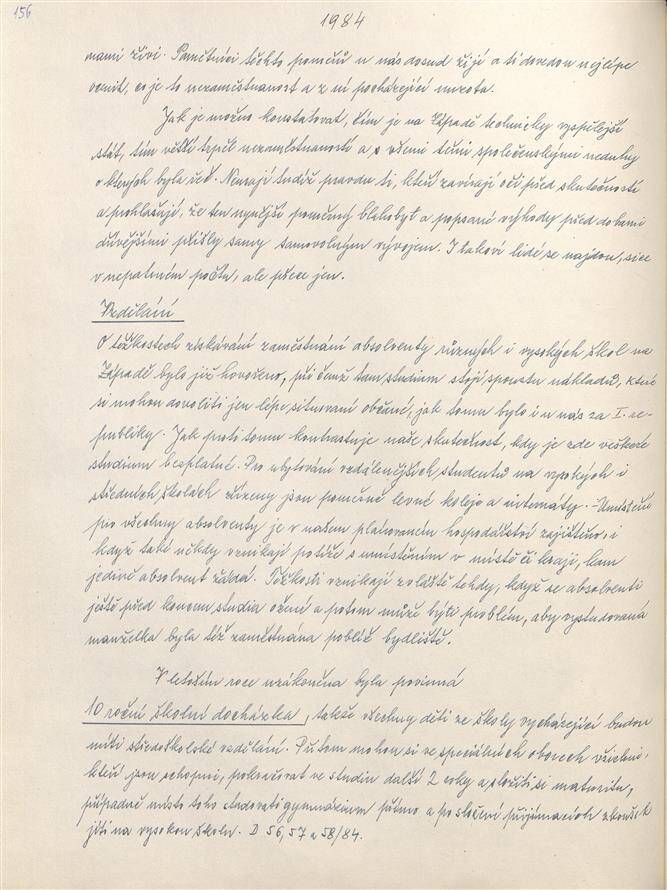 156
1984
nami živi. Pamětníci těchto poměrů u nás dosud žijí a ti dovedou nejlépe
ocenit, co je to nezaměstnanost a z ní pocházející mizota.
Jak je možno konstatovat, čím je na Západě technicky vyspělejší
stát, tím větší trpěl nezaměstnaností a s všemi těmi společenskými neduhy
o kterých byla řeč. Nemají tudíž pravdu ti, kteří zavírají oči před skutečností
a prohlašují, že ten nynější poměrný blahobyt a popsané výhody před dobami
dřívějšími přišly samy samovolným vývojem. I takoví lidé se najdou, sice
v nepatrném počtu, ale přece jen.
Vzdělání
O těžkostech získávání zaměstnání absolventy různých i vysokých škol na
Západě bylo již hovořeno, při čemž tam studium stojí spoustu nákladů, které
si mohou dovoliti jen lépe situovaní občané, jak tomu bylo i u nás za I. re-
publiky. Jak proti tomu kontrastuje naše skutečnost, kdy je zde veškeré
studium bezplatné. Pro ubytování vzdálenějších studentů na vysokých i
středních školách zřízeny jsou poměrně levné koleje a internáty. Umístění
pro všechny absolventy je v našem plánovaném hospodářství zajištěno, i
když také někdy vznikají potíže s umístěním v místě či kraji, kam
jedině absolvent žádá. Těžkosti vznikají zvláště tehdy, když se absolventi
ještě před koncem studia ožení a potom může býti problém, aby vystudovaná
manželka byla též zaměstnána poblíž bydliště.
V letošním roce uzákoněna byla povinná
10 roční školní docházka, takže všechny děti ze školy vycházející budou
míti středoškolské vzdělání. Při tom mohou si ve speciálních oborech všichni,
kteří jsou schopni, pokračovat ve studiu další 2 roky a složiti si maturitu,
případně místo toho studovati gymnázium přímo a po složení přijímacích zkoušek
jíti na vysokou školu. D 56, 57 a 58/84.